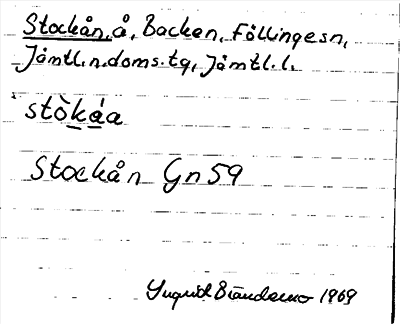 Stockån, å, Backen, Föllingesn,
Jämtl.n.doms.tg, Jämtl.l.
stò̱ká̱a
Stockån Gn 59
Ingrid 1969